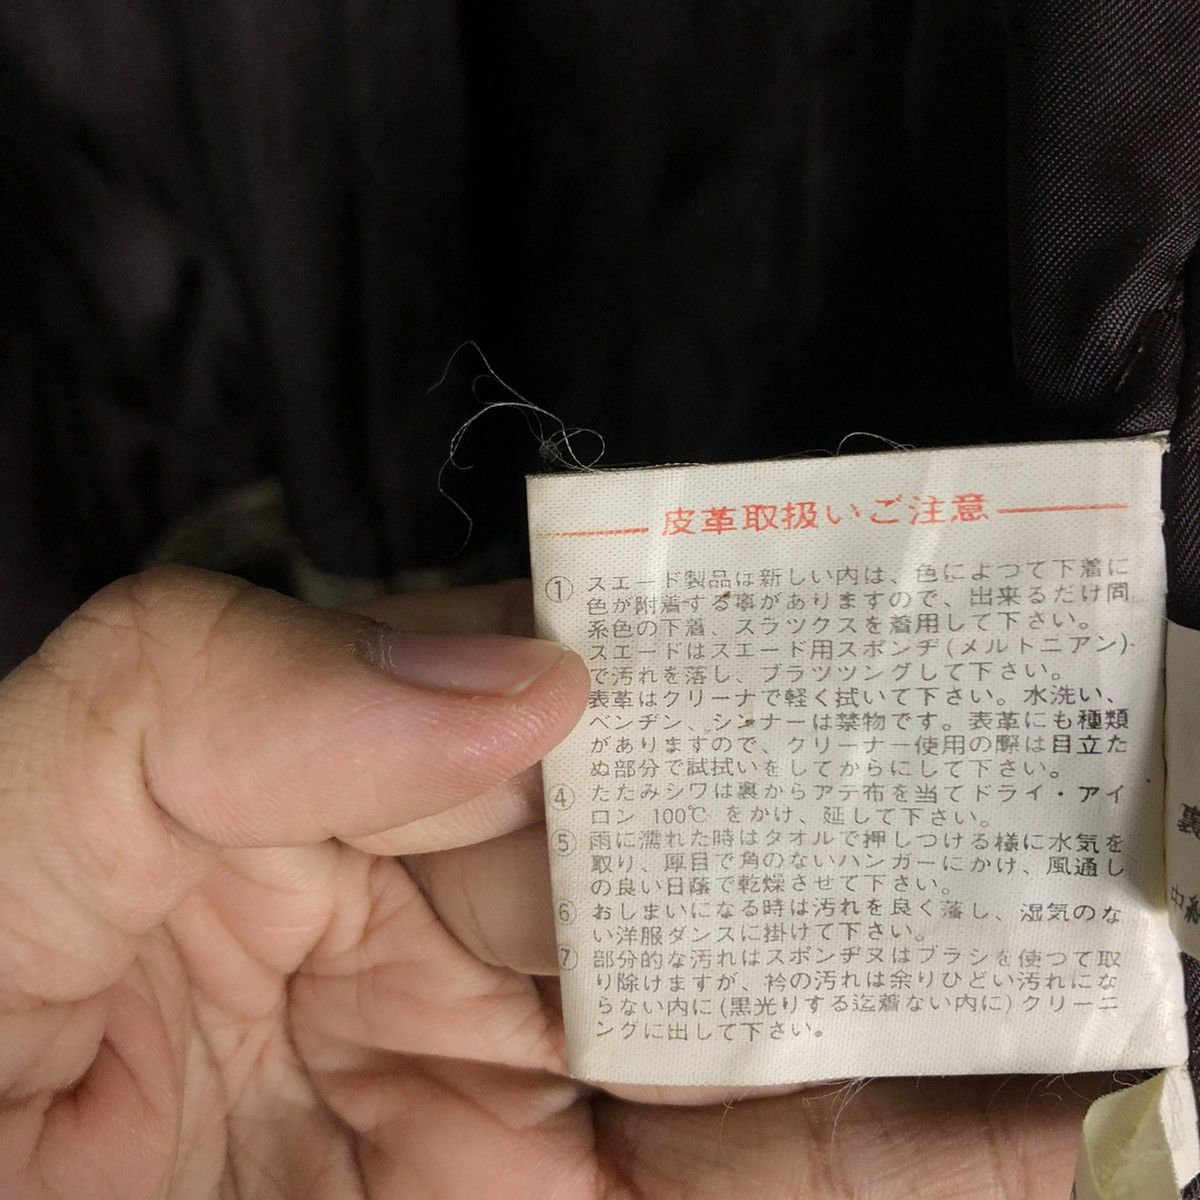 皮革取扱いご注意
① スエード製品は新しい内は、色によつて下着に
色が附着する事がありますので、出来るだけ同
系色の下着、スラツクスを着用して下さい。
スエードはスエード用スポンヂ(メルトニアン)
で汚れを落し、ブラツツングして下さい。
表革はクリーナで軽く拭いて下さい。水洗い、
ベンヂン、シンナーは禁物です。表革にも種類
がありますので、クリーナー使用の際は目立た
ぬ部分で試拭いをしてからにして下さい。
④ たたみシワは裏からアテ布を当てドライ・アイ
ロン 100℃ をかけ、延して下さい。
⑤ 雨に濡れた時はタオルで押しつける様に水気を
取り、厚目で角のないハンガーにかけ、風通し
の良い日蔭で乾燥させて下さい。
⑥ おしまいになる時は汚れを良く落し、湿気のな
い洋服ダンスに掛けて下さい。
⑦ 部分的な汚れはスポンヂヌはブラシを使つて取
り除けますが、衿の汚れは余りひどい汚れにな
らない内に(黒光りする迄着ない内に)クリーニ
ングに出して下さい。